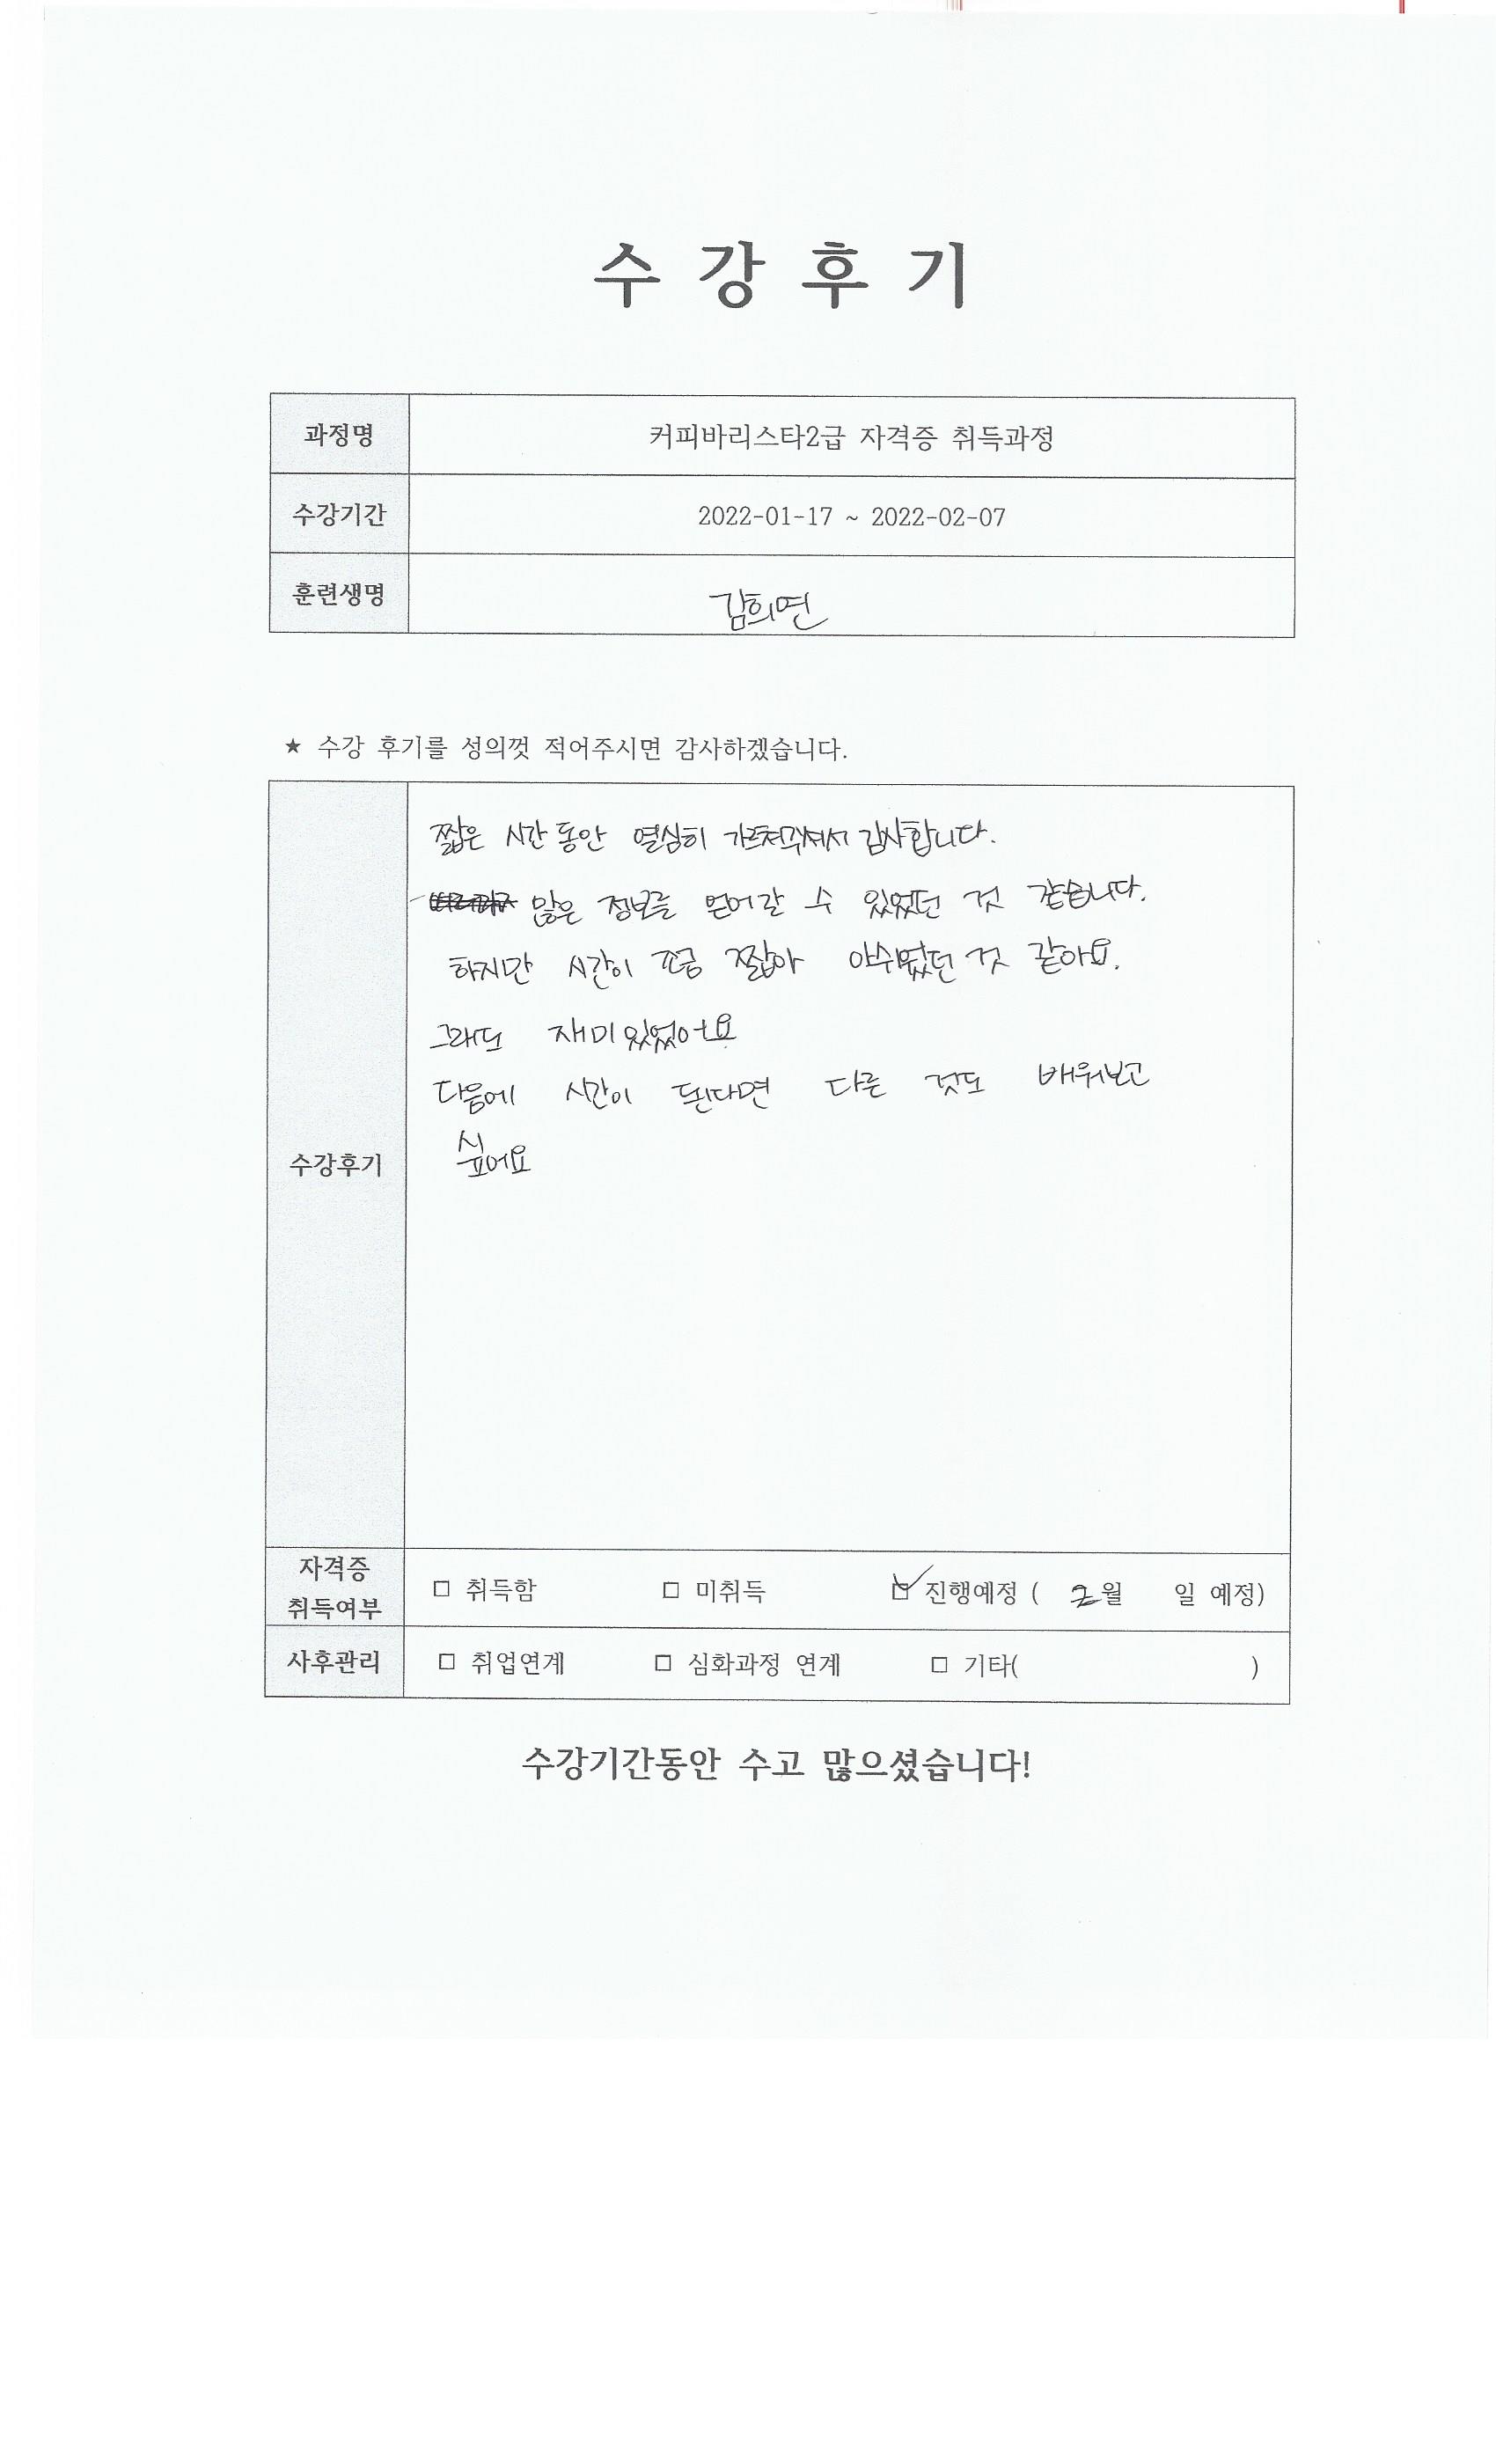 수 강 후 기
과정명 커피바리스타2급 자격증 취득과정
수강기간 2022-01-17 ~ 2022-02-07
훈련생명 김희연
★ 수강 후기를 성의껏 적어주시면 감사하겠습니다.
짧은 시간동안 열심히 가르쳐주셔서 감사합니다.
많은 정보를 얻어갈 수 있었던 것 같습니다.
하지만 시간이 조금 짧아 아쉬웠던 것 같아요.
그래도 재미있었어요
다음에 시간이 된다면 다른 것도 배워보고
싶어요
수강후기
자격증
취득여부 □ 취득함 □ 미취득 ☑ 진행예정 ( 2월 일 예정)
사후관리 □ 취업연계 □ 심화과정 연계 □ 기타( )
수강기간동안 수고 많으셨습니다!